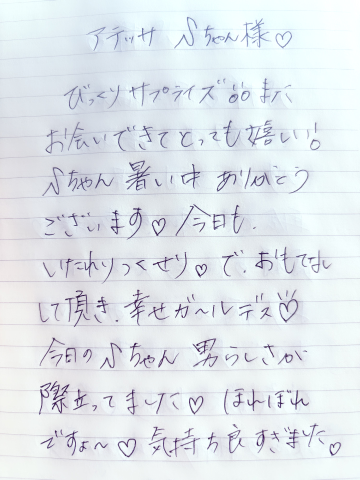 アテッサ Sちゃん様♡
びっくりサプライズ!!また
お会いできてとっても嬉しい!
Sちゃん 暑い中 ありがとう
ございます♡今日も、
いたれりつくせり♡で、おもてなし
して頂き、幸せガ〜ルデス♡
今日のSちゃん 男らしさが
際立ってました♡ ほれぼれ
ですょ〜♡気持ち良すぎました♡